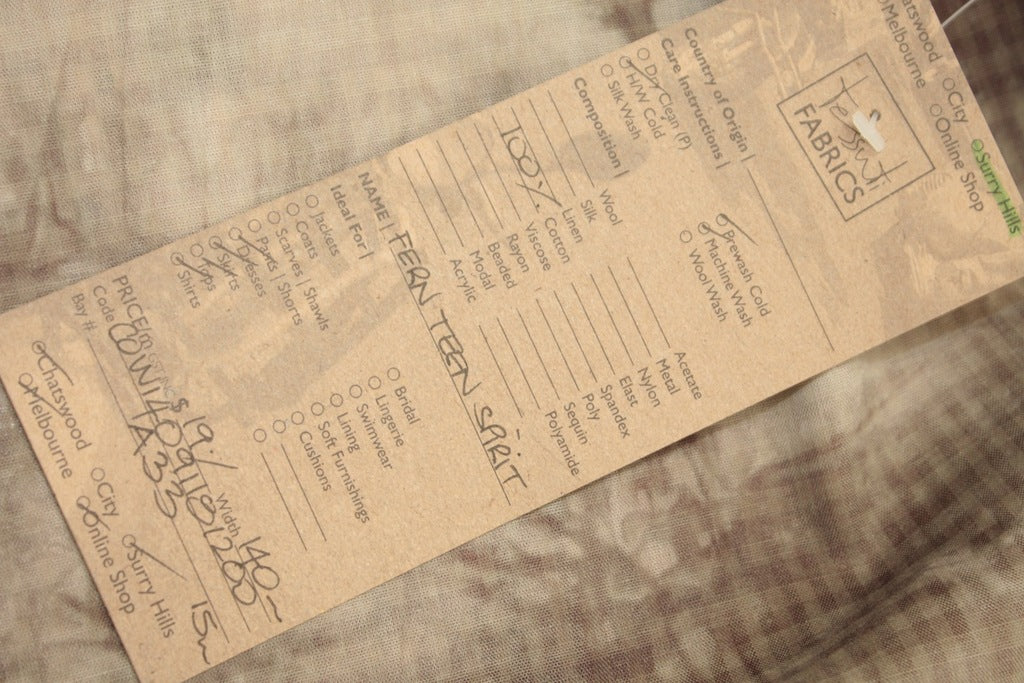 Chatswood ○City ○Surry Hills
○Melbourne ○Online Shop
Tessuti
FABRICS
Country of Origin |
Care Instructions |
○Dry Clean (P) ○Prewash Cold
○H/W Cold ○Machine Wash
○Silk Wash ○Wool Wash
Composition |
Wool Acetate
Silk Metal
Linen Nylon
100% Cotton Elast
Viscose Spandex
Rayon Poly
Beaded Sequin
Modal Polyamide
Acrylic
NAME | FERN TEEN SPIRIT
Ideal For |
○Jackets ○Bridal
○Coats ○Lingerie
○Scarves | Shawls ○Swimwear
○Pants | Shorts ○Lining
○Dresses ○Soft Furnishings
○Skirts ○Cushions
○Tops ○
○Shirts ○
PRICE $19.- Width 140
Code
Bay # A33 15m
○Chatswood ○City ○Surry Hills
○Melbourne ○Online Shop